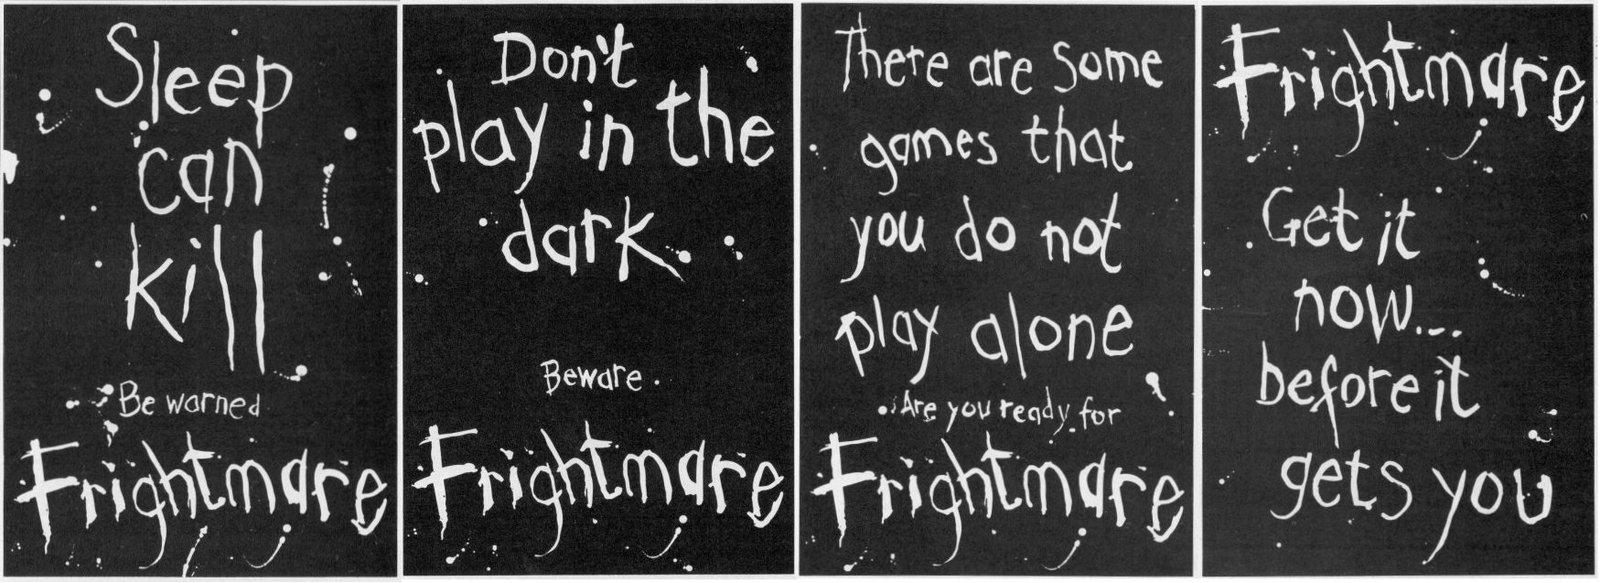 Sleep
can
kill
Be warned
Frightmare
Don't
play in the
dark.
Beware.
Frightmare
There are some
games that
you do not
play alone
Are you ready for
Frightmare
Frightmare
Get it
now...
before it
gets you